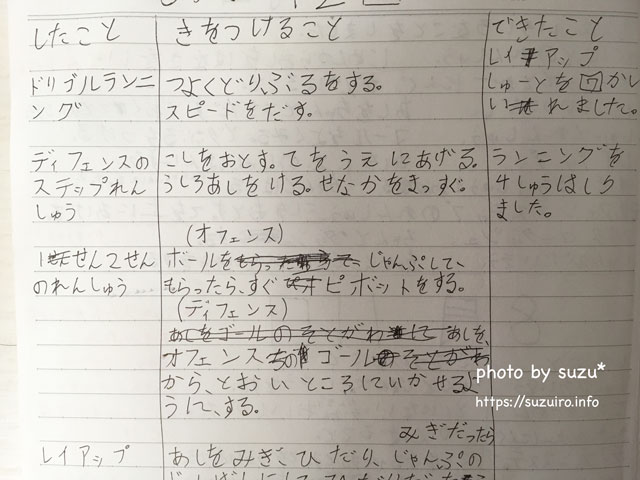 したこと
きをつけること
できたこと
ドリブルランニ
ング
つよくどりぶるをする。
スピードをだす。
レイアップ
しゅーとを回かし
いれました。
ディフェンスの
ステップれん
しゅう
こしをおとす。てをうえにあげる。
うしろあしをける。せなかをまっすぐ。
ランニングを
4しゅうはしり
ました。
1せん2せん
のれんしゅう…
(オフェンス)
ボールをじゃんぷして、
もらったら、すぐピボットをする。
(ディフェンス)
あしをゴールのそとがわにして あしを、
オフェンスのゴール
から、とおいところにいかせるよ
うに、する。
レイアップ
みぎだったら
あしをみぎ、ひだり、じゃんぷの
photo by suzu*
https://suzuiro.info